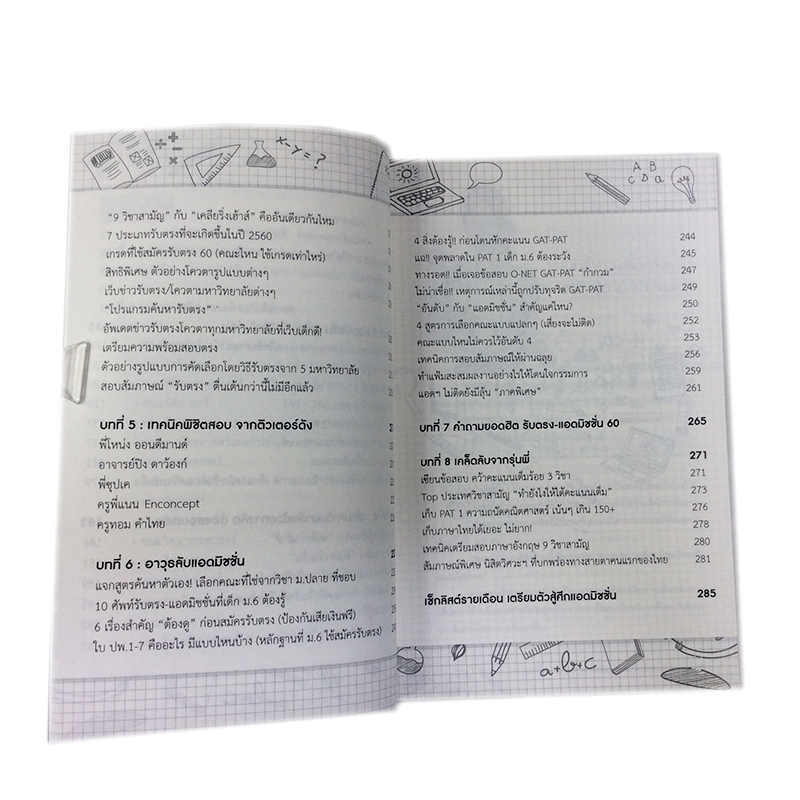 x-y=?
"9 วิชาสามัญ" กับ "เคลียริ่งเฮ้าส์" คืออันเดียวกันไหม
7 ประเภทรับตรงที่จะเกิดขึ้นในปี 2560
เกรดที่ใช้สมัครรับตรง 60 (คณะไหน ใช้เกรดเท่าไหร่)
สิทธิพิเศษ ตัวอย่างโควตารูปแบบต่างๆ
เว็บข่าวรับตรง/โควตามหาวิทยาลัยต่างๆ
"โปรแกรมค้นหารับตรง"
อัพเดตข่าวรับตรงโควตาทุกมหาวิทยาลัยที่เว็บเด็กดี!
เตรียมความพร้อมสอบตรง
ตัวอย่างรูปแบบการคัดเลือกโดยวิธีรับตรงจาก 5 มหาวิทยาลัย
สอบสัมภาษณ์ "รับตรง" ตื่นเต้นกว่านี้ไม่มีอีกแล้ว
บทที่ 5 : เทคนิคพิชิตสอบ จากติวเตอร์ดัง
พี่โหน่ง ออนดีมานด์
อาจารย์ปิง ดาว้องก์
พี่ซุปเค
ครูพี่แนน Enconcept
ครูทอม คำไทย
บทที่ 6 : อาวุธลับแอดมิชชั่น
แจกสูตรค้นหาตัวเอง! เลือกคณะที่ใช่จากวิชา ม.ปลาย ที่ชอบ
10 ศัพท์รับตรง-แอดมิชชั่นที่เด็ก ม.6 ต้องรู้
6 เรื่องสำคัญ "ต้องดู" ก่อนสมัครรับตรง (ป้องกันเสียเงินฟรี)
ใบ ปพ.1-7 คืออะไร มีแบบไหนบ้าง (หลักฐานที่ ม.6 ใช้สมัครรับตรง)
A B
C D a
4 สิ่งต้องรู้!! ก่อนโดนหักคะแนน GAT-PAT 244
แฉ!! จุดพลาดใน PAT 1 เด็ก ม.6 ต้องระวัง 245
ทางรอด!! เมื่อเจอข้อสอบ O-NET GAT-PAT "กำกวม" 247
ไม่น่าเชื่อ!! เหตุการณ์เหล่านี้ถูกปรับทุจริต GAT-PAT 249
"อันดับ" กับ "แอดมิชชั่น" สำคัญแค่ไหน? 250
4 สูตรการเลือกคณะแบบแปลกๆ (เสี่ยงจะไม่ติด) 252
คณะแบบไหนไม่ควรไว้อันดับ 4 253
เทคนิคการสอบสัมภาษณ์ให้ผ่านฉลุย 256
ทำแฟ้มสะสมผลงานอย่างไรให้โดนใจกรรมการ 259
แอดฯ ไม่ติดยังมีลุ้น "ภาคพิเศษ" 261
บทที่ 7 คำถามยอดฮิต รับตรง-แอดมิชชั่น 60 265
บทที่ 8 เคล็ดลับจากรุ่นพี่ 271
เซียนข้อสอบ คว้าคะแนนเต็มร้อย 3 วิชา 271
Top ประเทศวิชาสามัญ "ทำยังไงให้ได้คะแนนเต็ม" 273
เก็บ PAT 1 ความถนัดคณิตศาสตร์ เน้นๆ เกิน 150+ 276
เก็บภาษาไทยได้เยอะ ไม่ยาก! 278
เทคนิคเตรียมสอบภาษาอังกฤษ 9 วิชาสามัญ 280
สัมภาษณ์พิเศษ นิสิตวิศวะฯ ที่บกพร่องทางสายตาคนแรกของไทย 281
เช็กลิสต์รายเดือน เตรียมตัวสู้ศึกแอดมิชชั่น 285
a+b+c